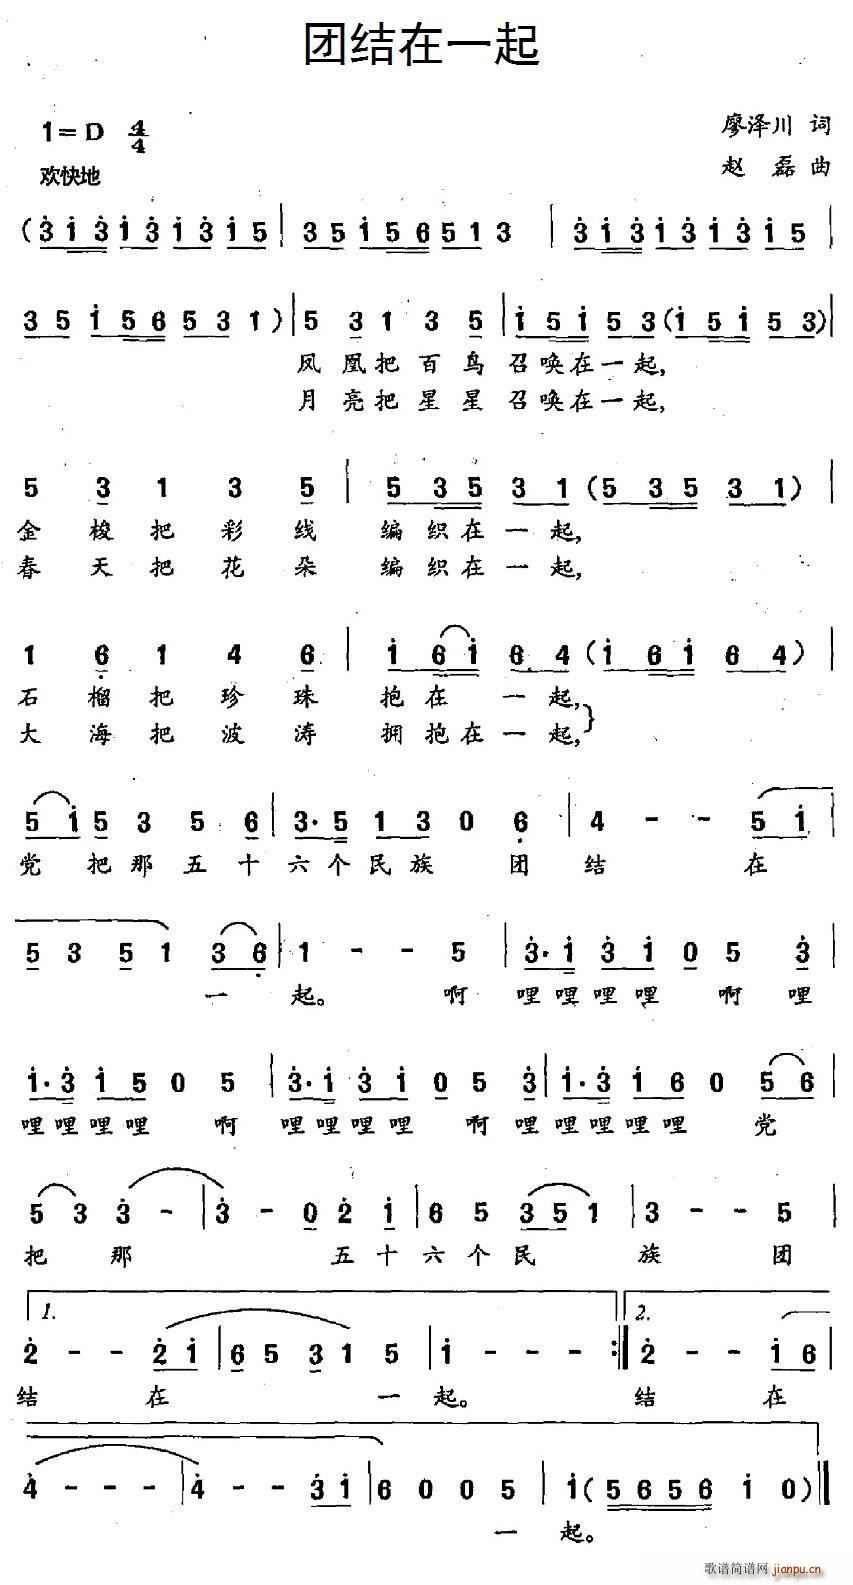 团结在一起
1=D 4/4
廖泽川 词
欢快地
赵 磊 曲
(3 1 3 1 3 1 3 1 5 | 3 5 1 5 6 5 1 3 | 3 1 3 1 3 1 3 1 5 |
3 5 1 5 6 5 3 1) | 5 3 1 3 5 | 1 5 1 5 3 (1 5 1 5 3) |
凤凰把百鸟召唤在一起,
月亮把星星召唤在一起,
5 3 1 3 5 | 5 3 5 3 1 (5 3 5 3 1) |
金梭把彩线 编织在一起,
春天把花朵 编织在一起,
1 6 1 4 6 | 1 6 1 6 4 (1 6 1 6 4) |
石榴把珍珠 抱在 一起,
大海把波涛 拥抱在一起,
5 1 5 3 5 6 | 3· 5 1 3 0 6 | 4 - - 5 1
党 把那五十六个民族 团 结 在
5 3 5 1 3 6 | 1 - - 5 | 3· 1 3 1 0 5 3 |
一 起。 啊 哩哩哩哩 啊哩
1· 3 1 5 0 5 | 3· 1 3 1 0 5 3 | 1· 3 1 6 0 5 6 |
哩哩哩哩 啊 哩哩哩哩 啊哩哩哩哩哩 党
5 3 3 - | 3 - 0 2 1 | 6 5 3 5 1 | 3 - - 5 |
把 那 五十六个民 族 团
1. 2.
2 - - 2 1 | 6 5 3 1 5 | 1 - - - :| 2 - - 1 6 |
结 在 一起。 结 在
4 - - - | 4 - - 3 1 | 6 0 0 5 | 1 (5 6 5 6 1 0) ||
一 起。
歌谱简谱网 jianpu.cn